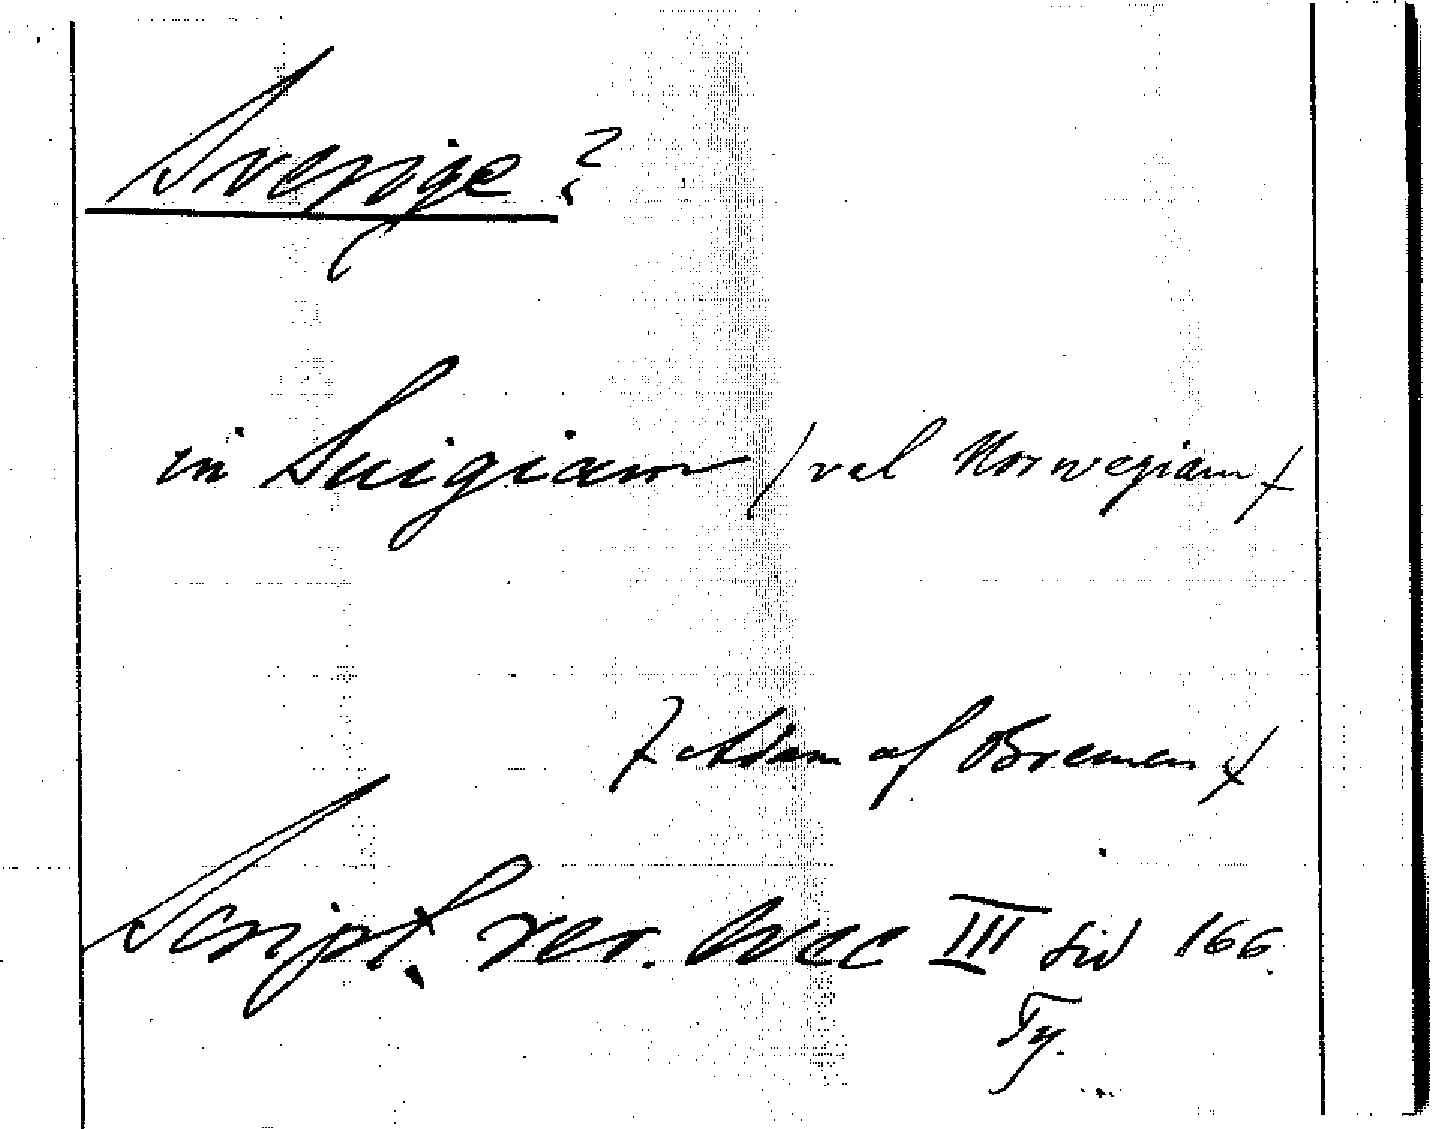 Sverige?
in Suigiam (vel Norwegiam)
(Adam af Bremen)
Script. rer. svec III sid 166.
Ty.